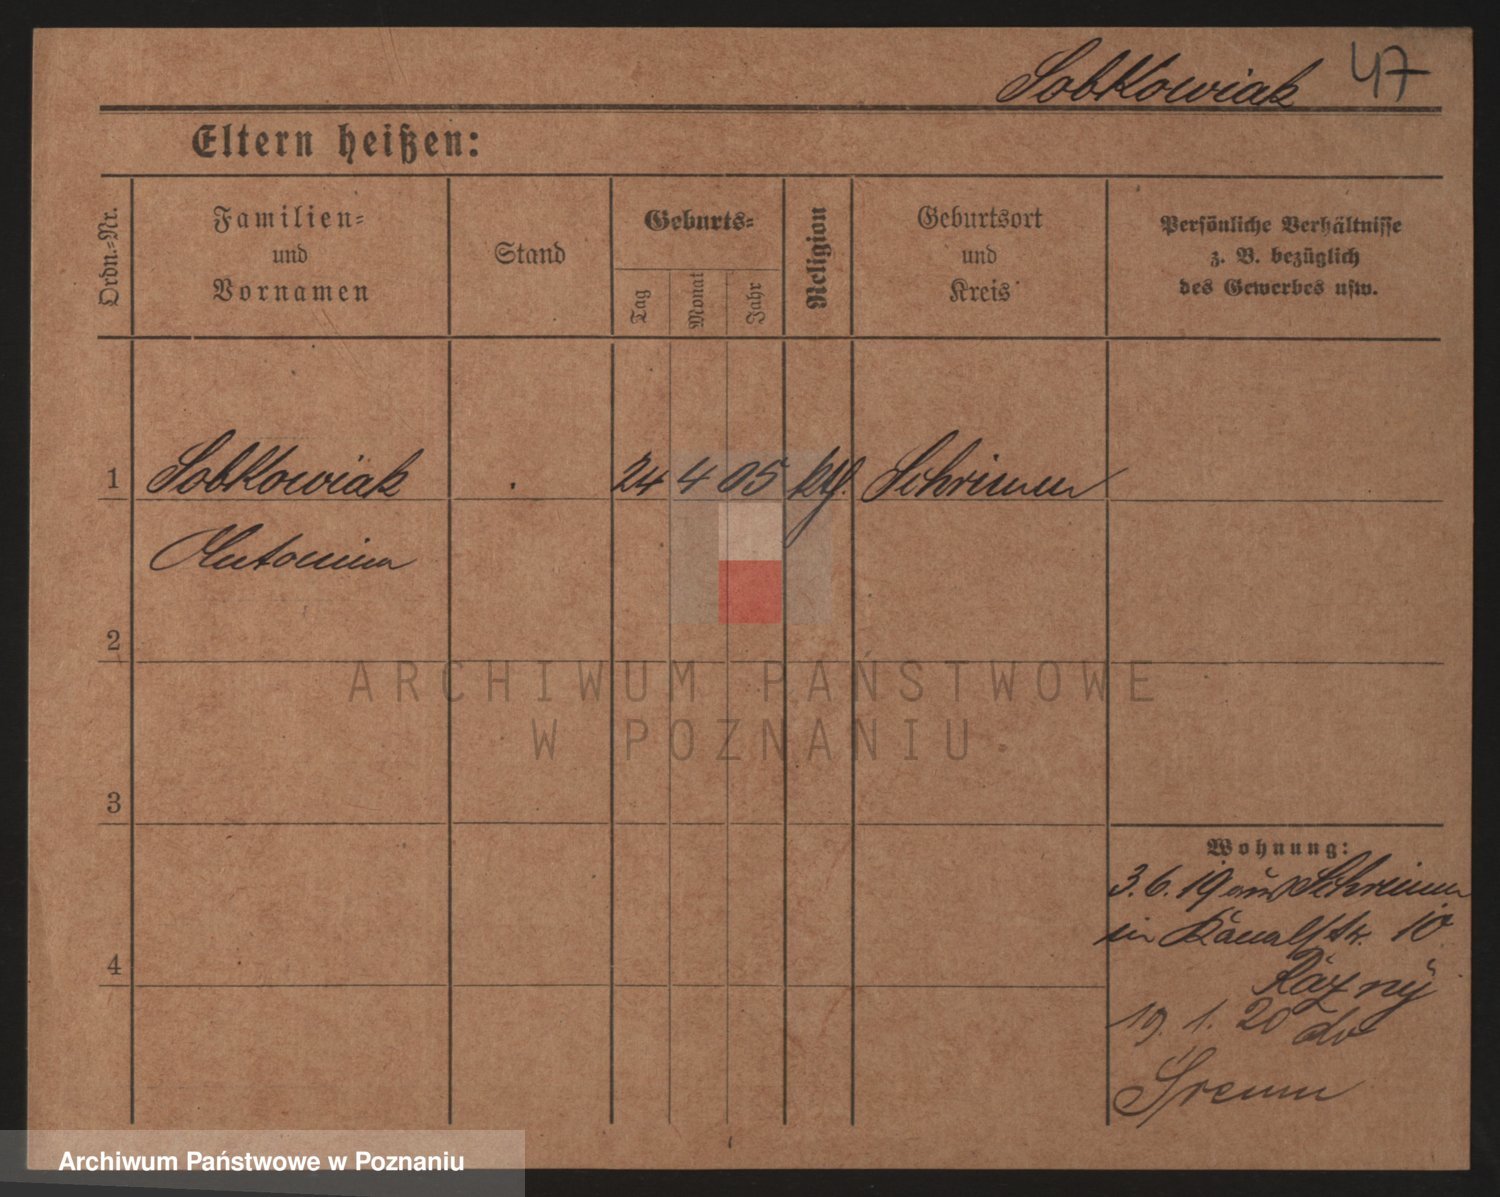 Sobkowiak 47
Eltern heißen:
Ordn.=Nr.
Familien=
und
Vornamen
Stand
Geburts=
Tag
Monat
Jahr
Religion
Geburtsort
und
Kreis
Persönliche Verhältnisse
z. B. bezüglich
des Gewerbes usw.
1 Sobkowiak 24 4 05 kth. Schrimm
Antonina
2
3
4
Wohnung:
3.6.19 aus Schrimm
in Kanalstr. 10
19. 1. 20 do
Śremu
ARCHIWUM PAŃSTWOWE
W POZNANIU
Archiwum Państwowe w Poznaniu